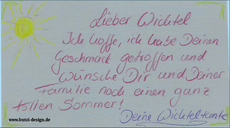 Lieber Wichtel
Ich hoffe, ich habe Deinen
Geschmack getroffen und
wünsche Dir und Deiner
Familie noch einen ganz
tollen Sommer!
Deine Wichteltante
www.kunzi-design.de